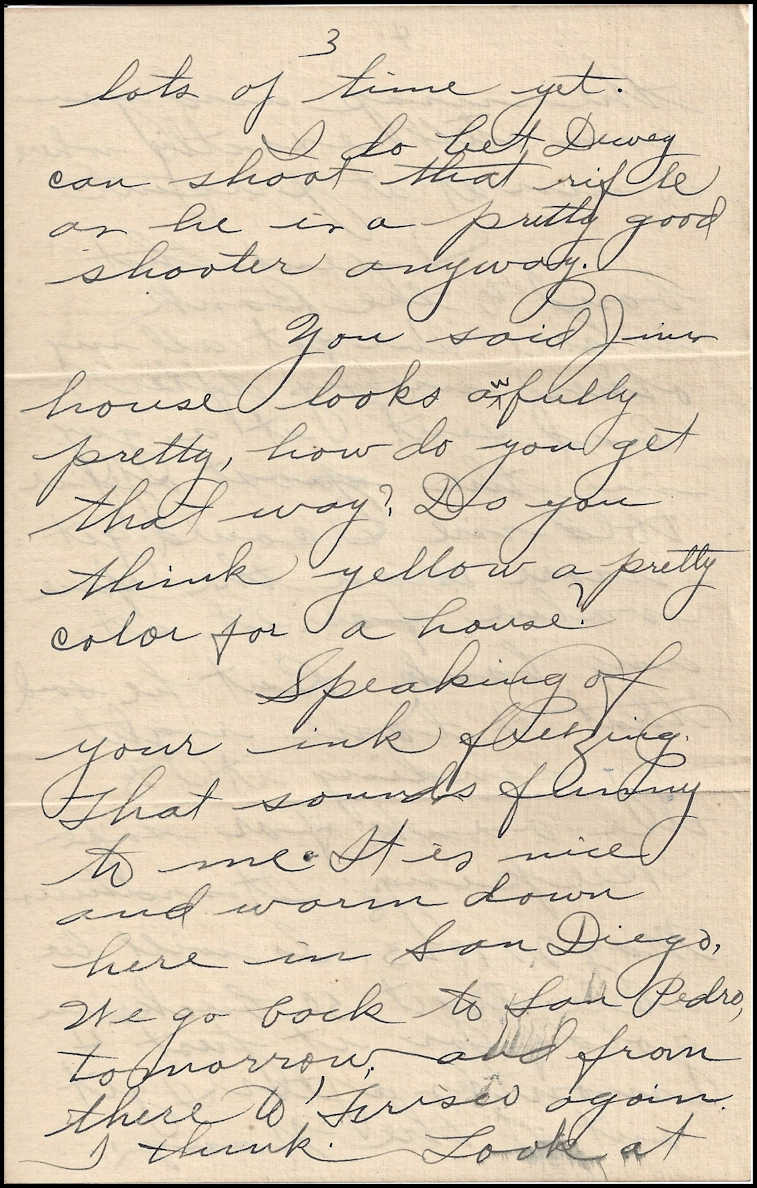 3
lots of time yet.
I do bet Dewey
can shoot that rifle
as he is a pretty good
shooter anyway.
You said Jims
house looks awfully
pretty, how do you get
that way? Do you
think yellow a pretty
color for a house?
Speaking of
your ink freezing.
That sounds funny
to me. It is nice
and warm down
here in San Diego,
We go back to San Pedro,
tomorrow, and from
there to 'Frisco again.
I think. Look at